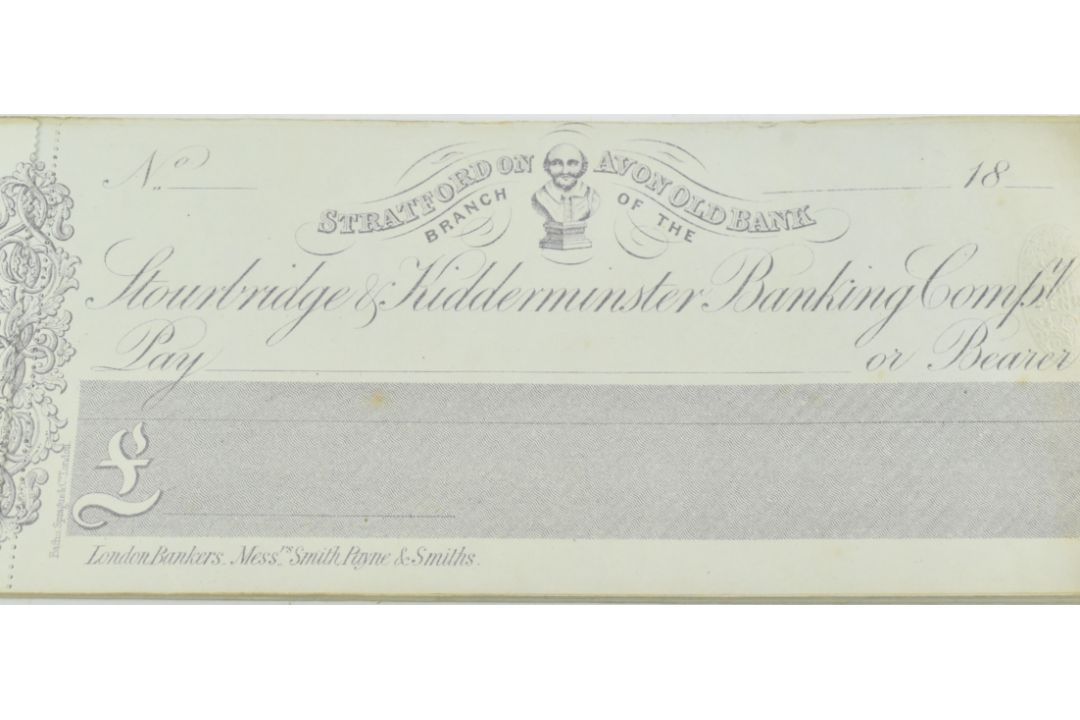 No.
18
STRATFORD ON AVON OLD BANK
BRANCH OF THE
Stourbridge & Kidderminster Banking Compy
Pay or Bearer
£
London Bankers. Messrs Smith, Payne & Smiths.
Sprague & Co. London